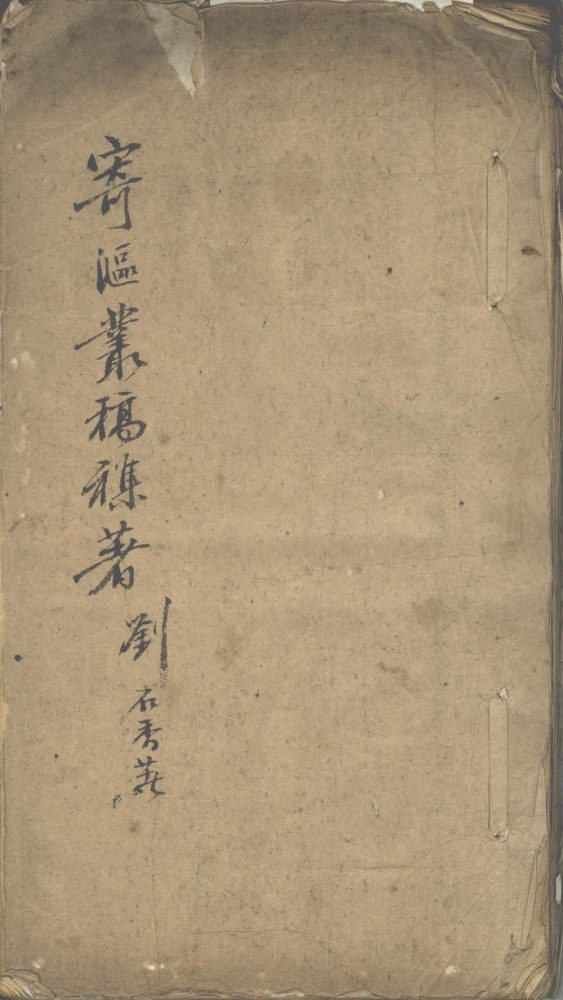 寄漚叢稿襍著
劉石香葊